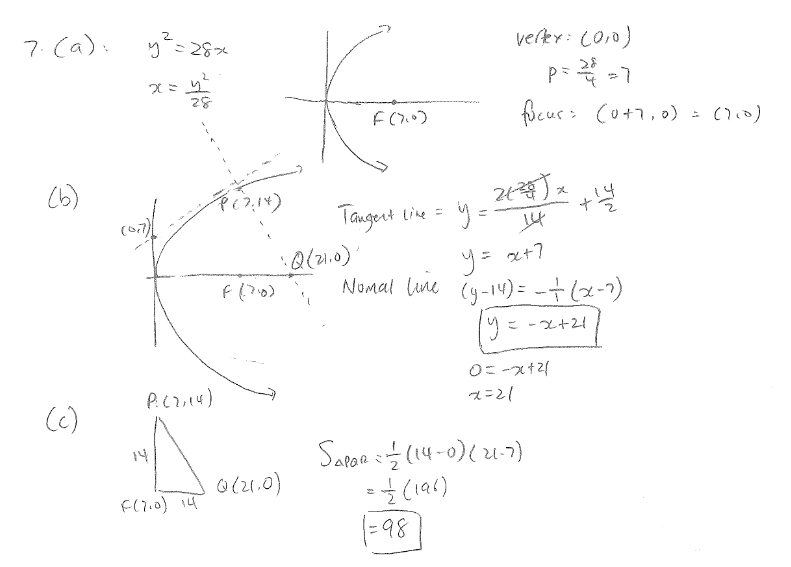 7. (a): y² = 28x
x = y²/28
F(7,0)
vertex: (0,0)
p = 28/4 = 7
focus: (0+7,0) = (7,0)
(b)
P(7,14)
(0,7)
Q(21,0)
F(7,0)
Tangent line = y = 2(28/4)x/14 + 14/2
y = x+7
Nomal line (y-14) = -1/1(x-7)
y = -x+21
0 = -x+21
x = 21
(c)
P(7,14)
14
F(7,0) 14
Q(21,0)
S△PQR = 1/2(14-0)(21-7)
= 1/2(196)
= 98